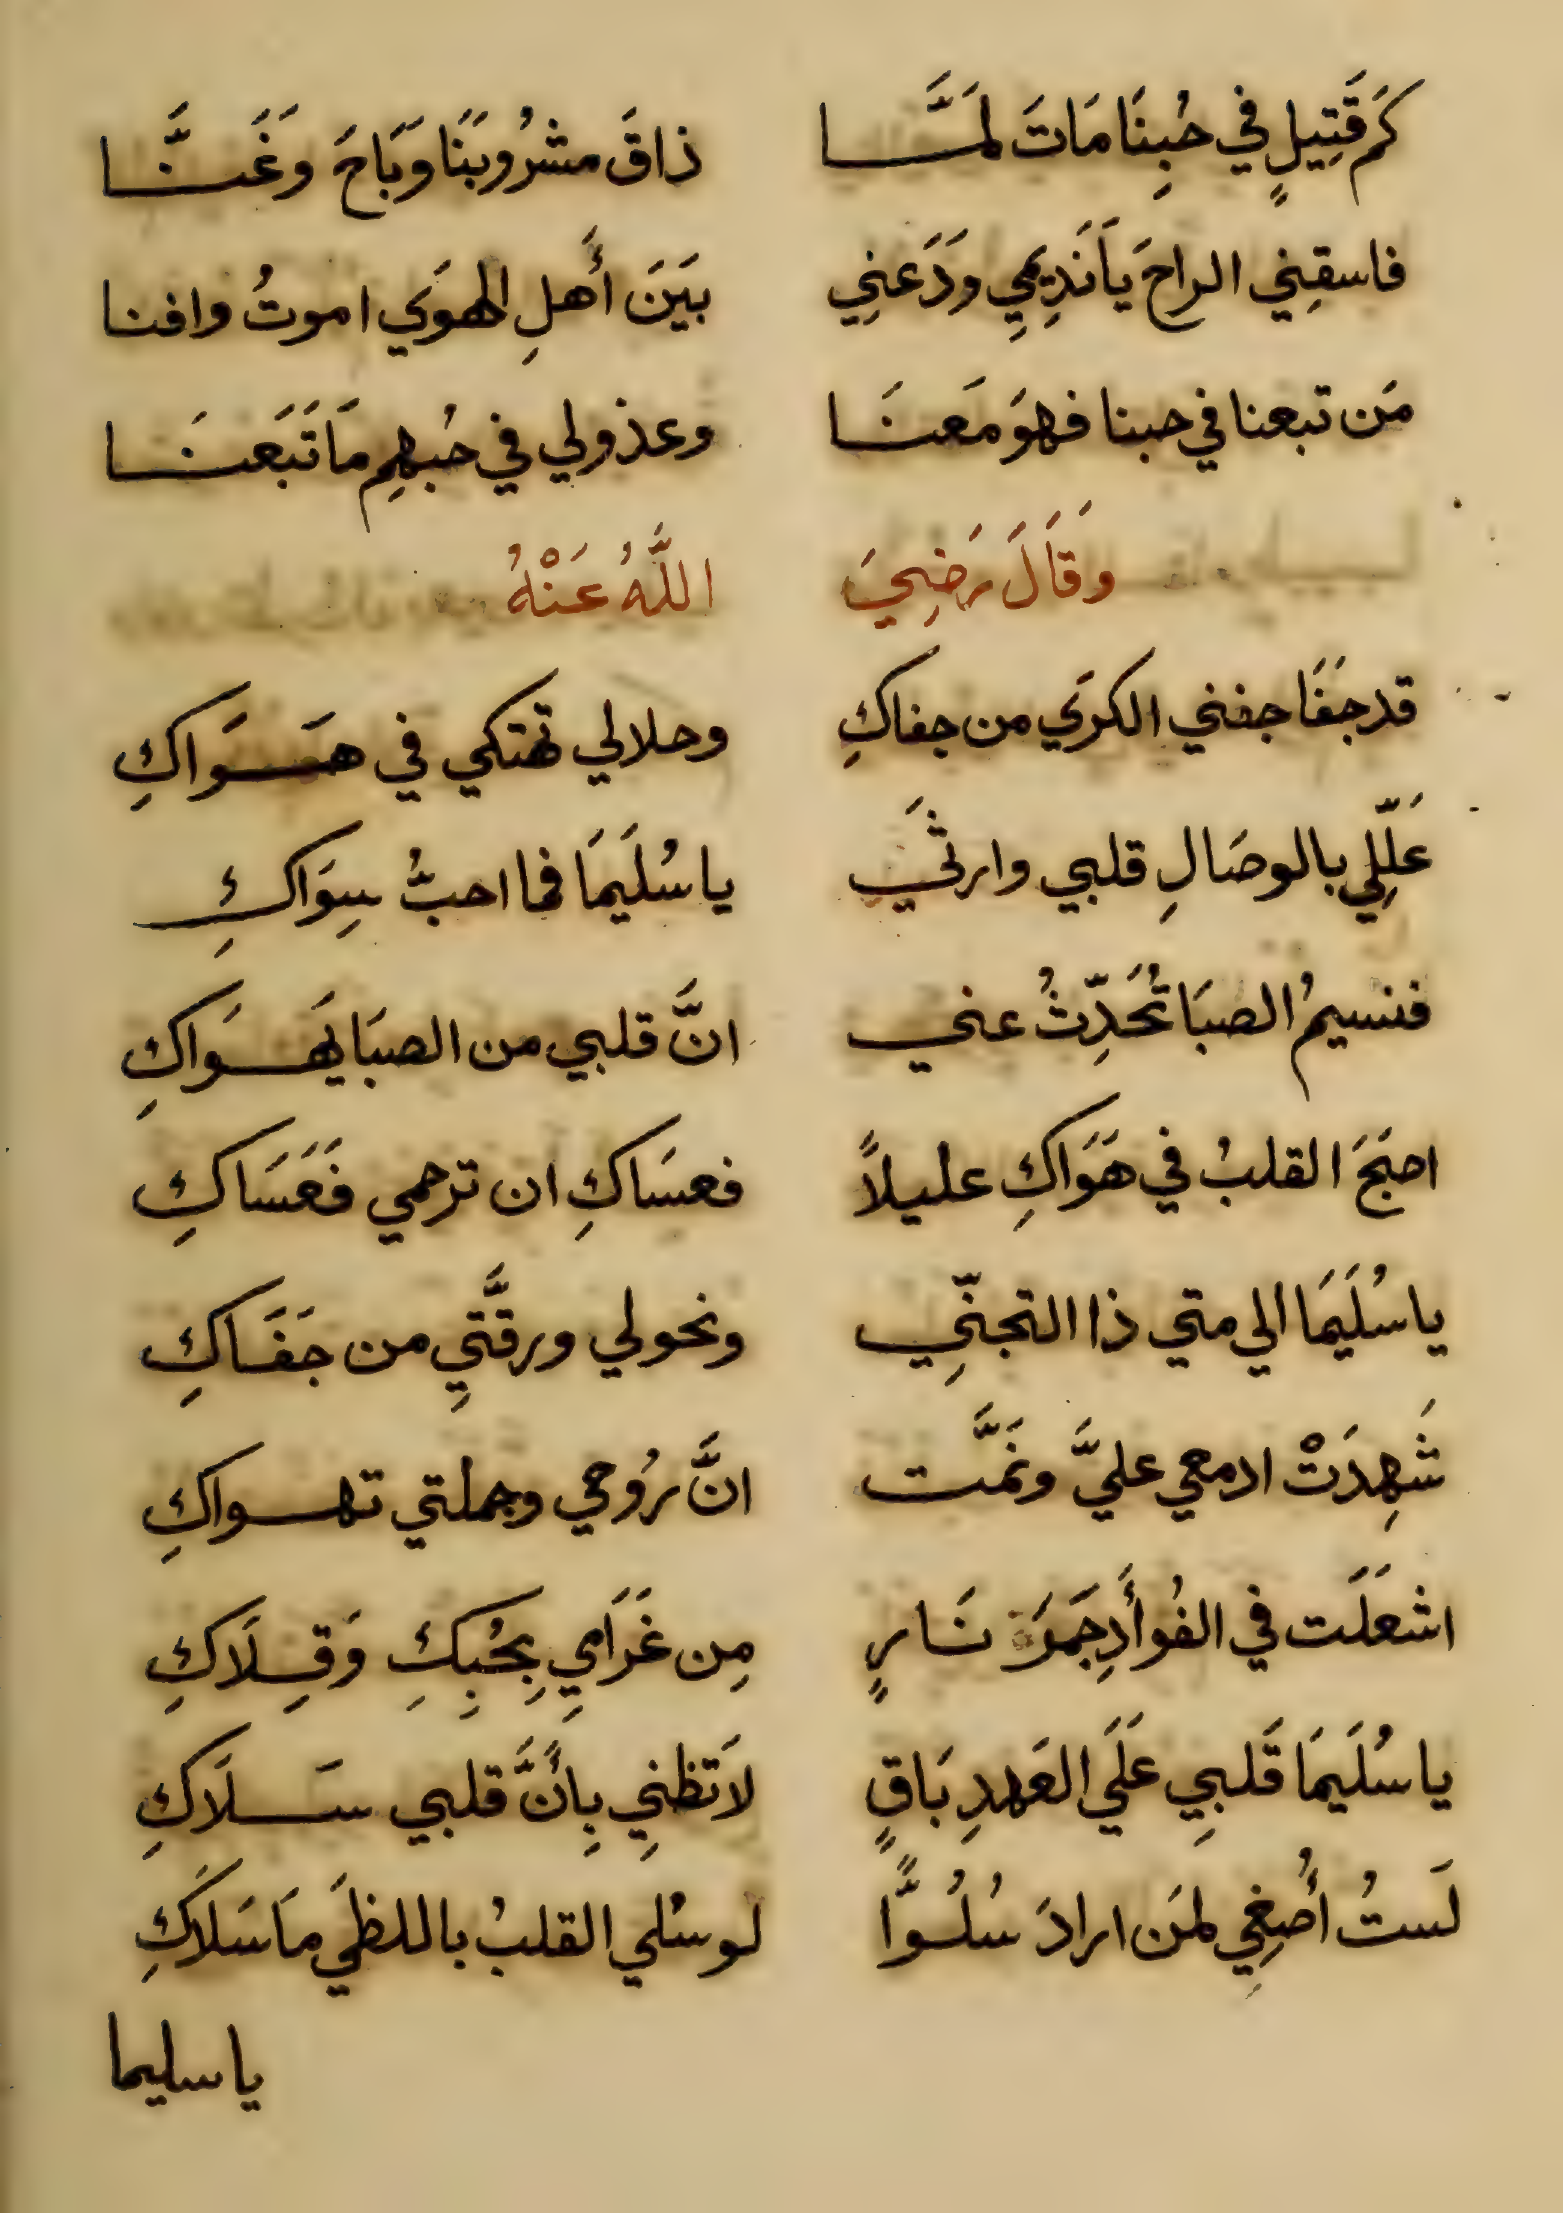 كَم قَتِيلٍ في حُبِنَا مَاتَ لمَـَّـا ذاقَ مشرُوبَنَا وَبَاحَ وغَنَّـا
فاسقِني الراحَ يَا نَدِيمِي ودَعنِي بَينَ أَهلِ الهوَي اموتُ وافنا
مَن تبعنا في حبنا فهوَ مَعنَا وعذولي في حُبهِم مَا تَبَعنَا
وَقَالَ رَضِيَ اللَّهُ عَنْهُ
قد جَفَا جفني الكرَي من جفاكِ وحلالي تهتكي في هَـوَاكِ
عَلِّلي بالوصَالِ قلبي وارثَي يا سُلَيمَا فما احبُّ سِوَاكِ
فنسيمُ الصبَا تُحَدِّثُ عني انَّ قلبي من الصبَا يَهـوَاكِ
اصبَحَ القلبُ في هَوَاكِ عليلاً فعسَاكِ ان ترحمي فَعَسَاكِ
يا سُلَيمَا الي متي ذا التجنِّي ونحولي ورقَّتيِ من جَفَاكِ
شَهِدَتْ ادمعي عليَّ ونمَّت انَّ رُوحي وجملتي تهـواكِ
اشعَلَت في الفُوأَدِ جَمرَة نَـارٍ مِن غَرَامِي بِحُبِكِ وَقِـلَاكِ
يا سُلَيمَا قَلبِي عَلَي العَهدِ بَاقٍ لاَ تظنِي بِأَنَّ قلبي سَـلَاكِ
لَستُ أُصغِي لمَن ارادَ سُلُـوًّا لو سُلي القلبُ باللظَي مَا سَلاَكِ
يا سليما